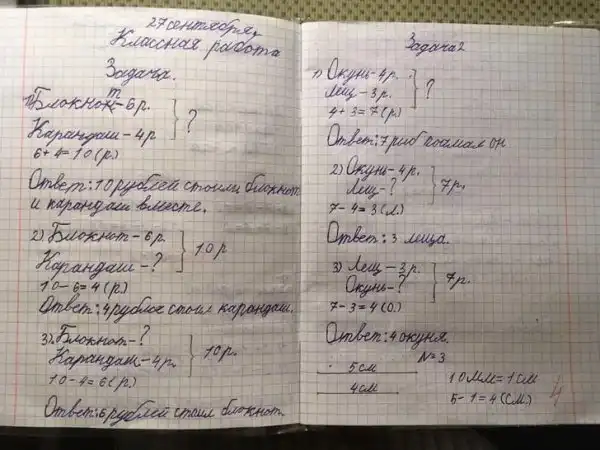 27 сентября,
Классная работа
Задача.
1) Блокнот - 6р.
Карандаш - 4р
?
6+4=10(р.)
Ответ: 10 рублей стоили блокнот
и карандаш вместе.
2) Блокнот - 6р.
Карандаш - ?
10р
10-6=4(р.)
Ответ: 4 рубля стоил карандаш.
3) Блокнот - ?
Карандаш - 4р.
10р.
10-4=6(р.)
Ответ: 6 рублей стоил блокнот.
Задача 2
1) Окунь - 4р.
Лещ - 3р.
?
4+3=7(р.)
Ответ: 7 риб поймал он
2) Окунь - 4р.
Лещ - ?
7р.
7-4=3(л.)
Ответ: 3 леща.
3) Лещ - 3р.
Окунь - ?
7р.
7-3=4(о.)
Ответ: 4 окуня.
N=3
5см
4см
10мм=1см
5-1=4(см.)
4